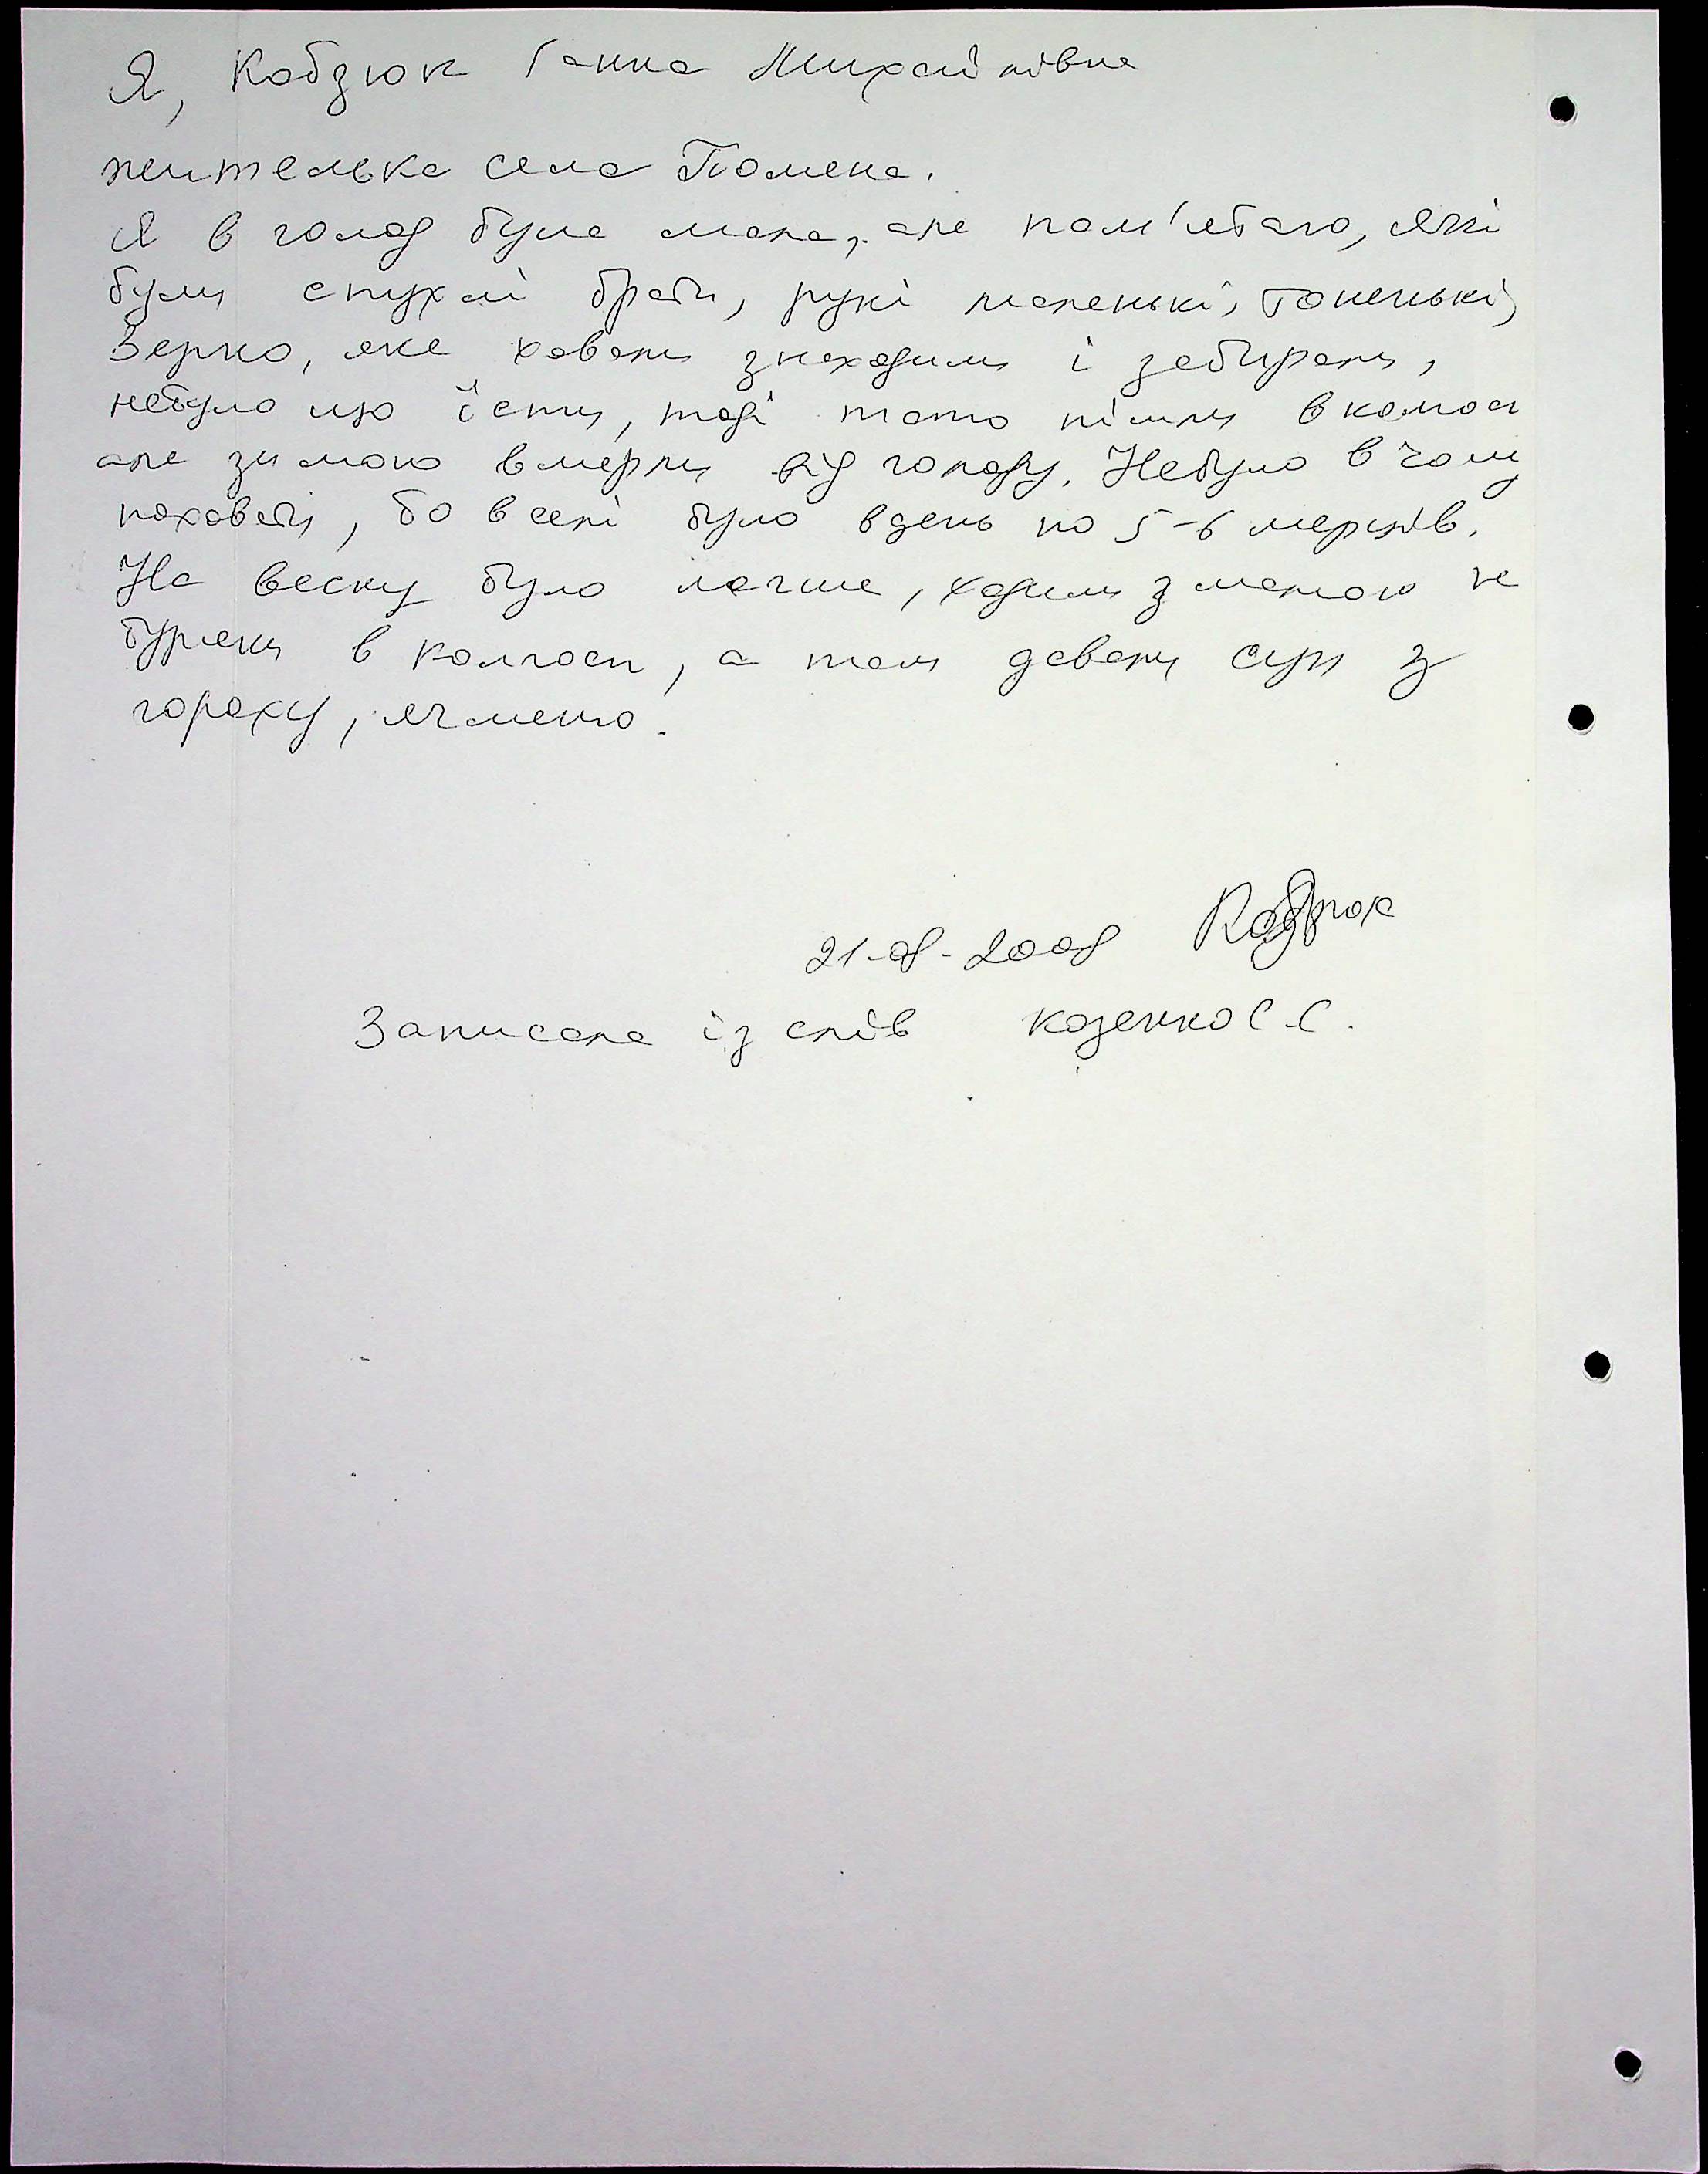 Я, Кобзюк Ганна Михайлівна
жителька села Тюмена.
Я в голод була мала, але пам'ятаю, які
були спухлі брати, рукі маленькі, тоненькі,
Зерно, яке ховали знаходили і забирали,
небуло що їсти, тоді тато пішли в колгосп
але зимою вмерли від голоду. Небуло в чому
поховати, бо в селі було вдень по 5-6 мерців.
На весну було легше, ходили з мамою на
буряки в колгосп, а там давали суп з
гороху, ячменю.
21-08-2008 Кобзюк
Записала із слів Козенко С.С.